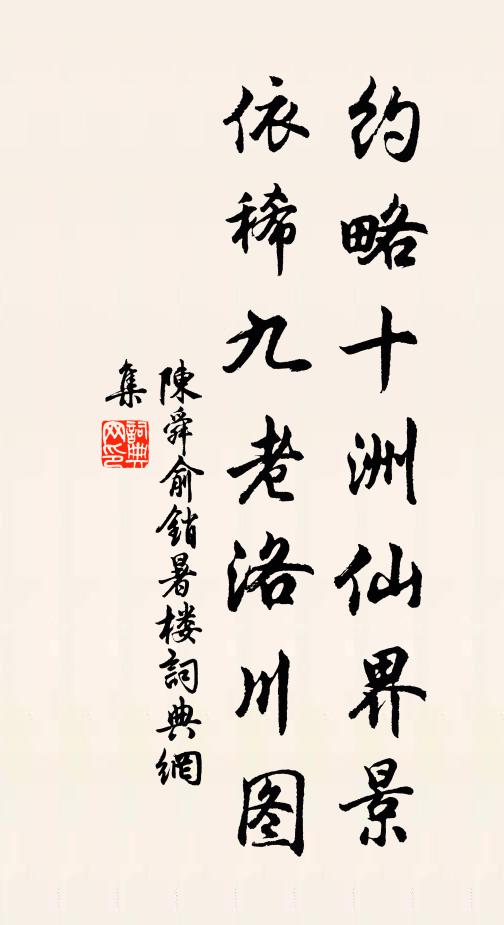 约略十洲仙界景
依稀九老洛川图
陳舜俞銷暑楼詞典網
集
詞典网印